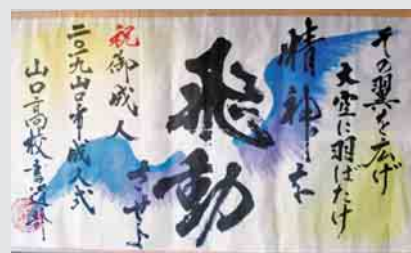 その翼を広げ
大空に羽ばたけ
精神を
飛動
させよ
祝御成人
二〇一九山口市成人式
山口高校書道部